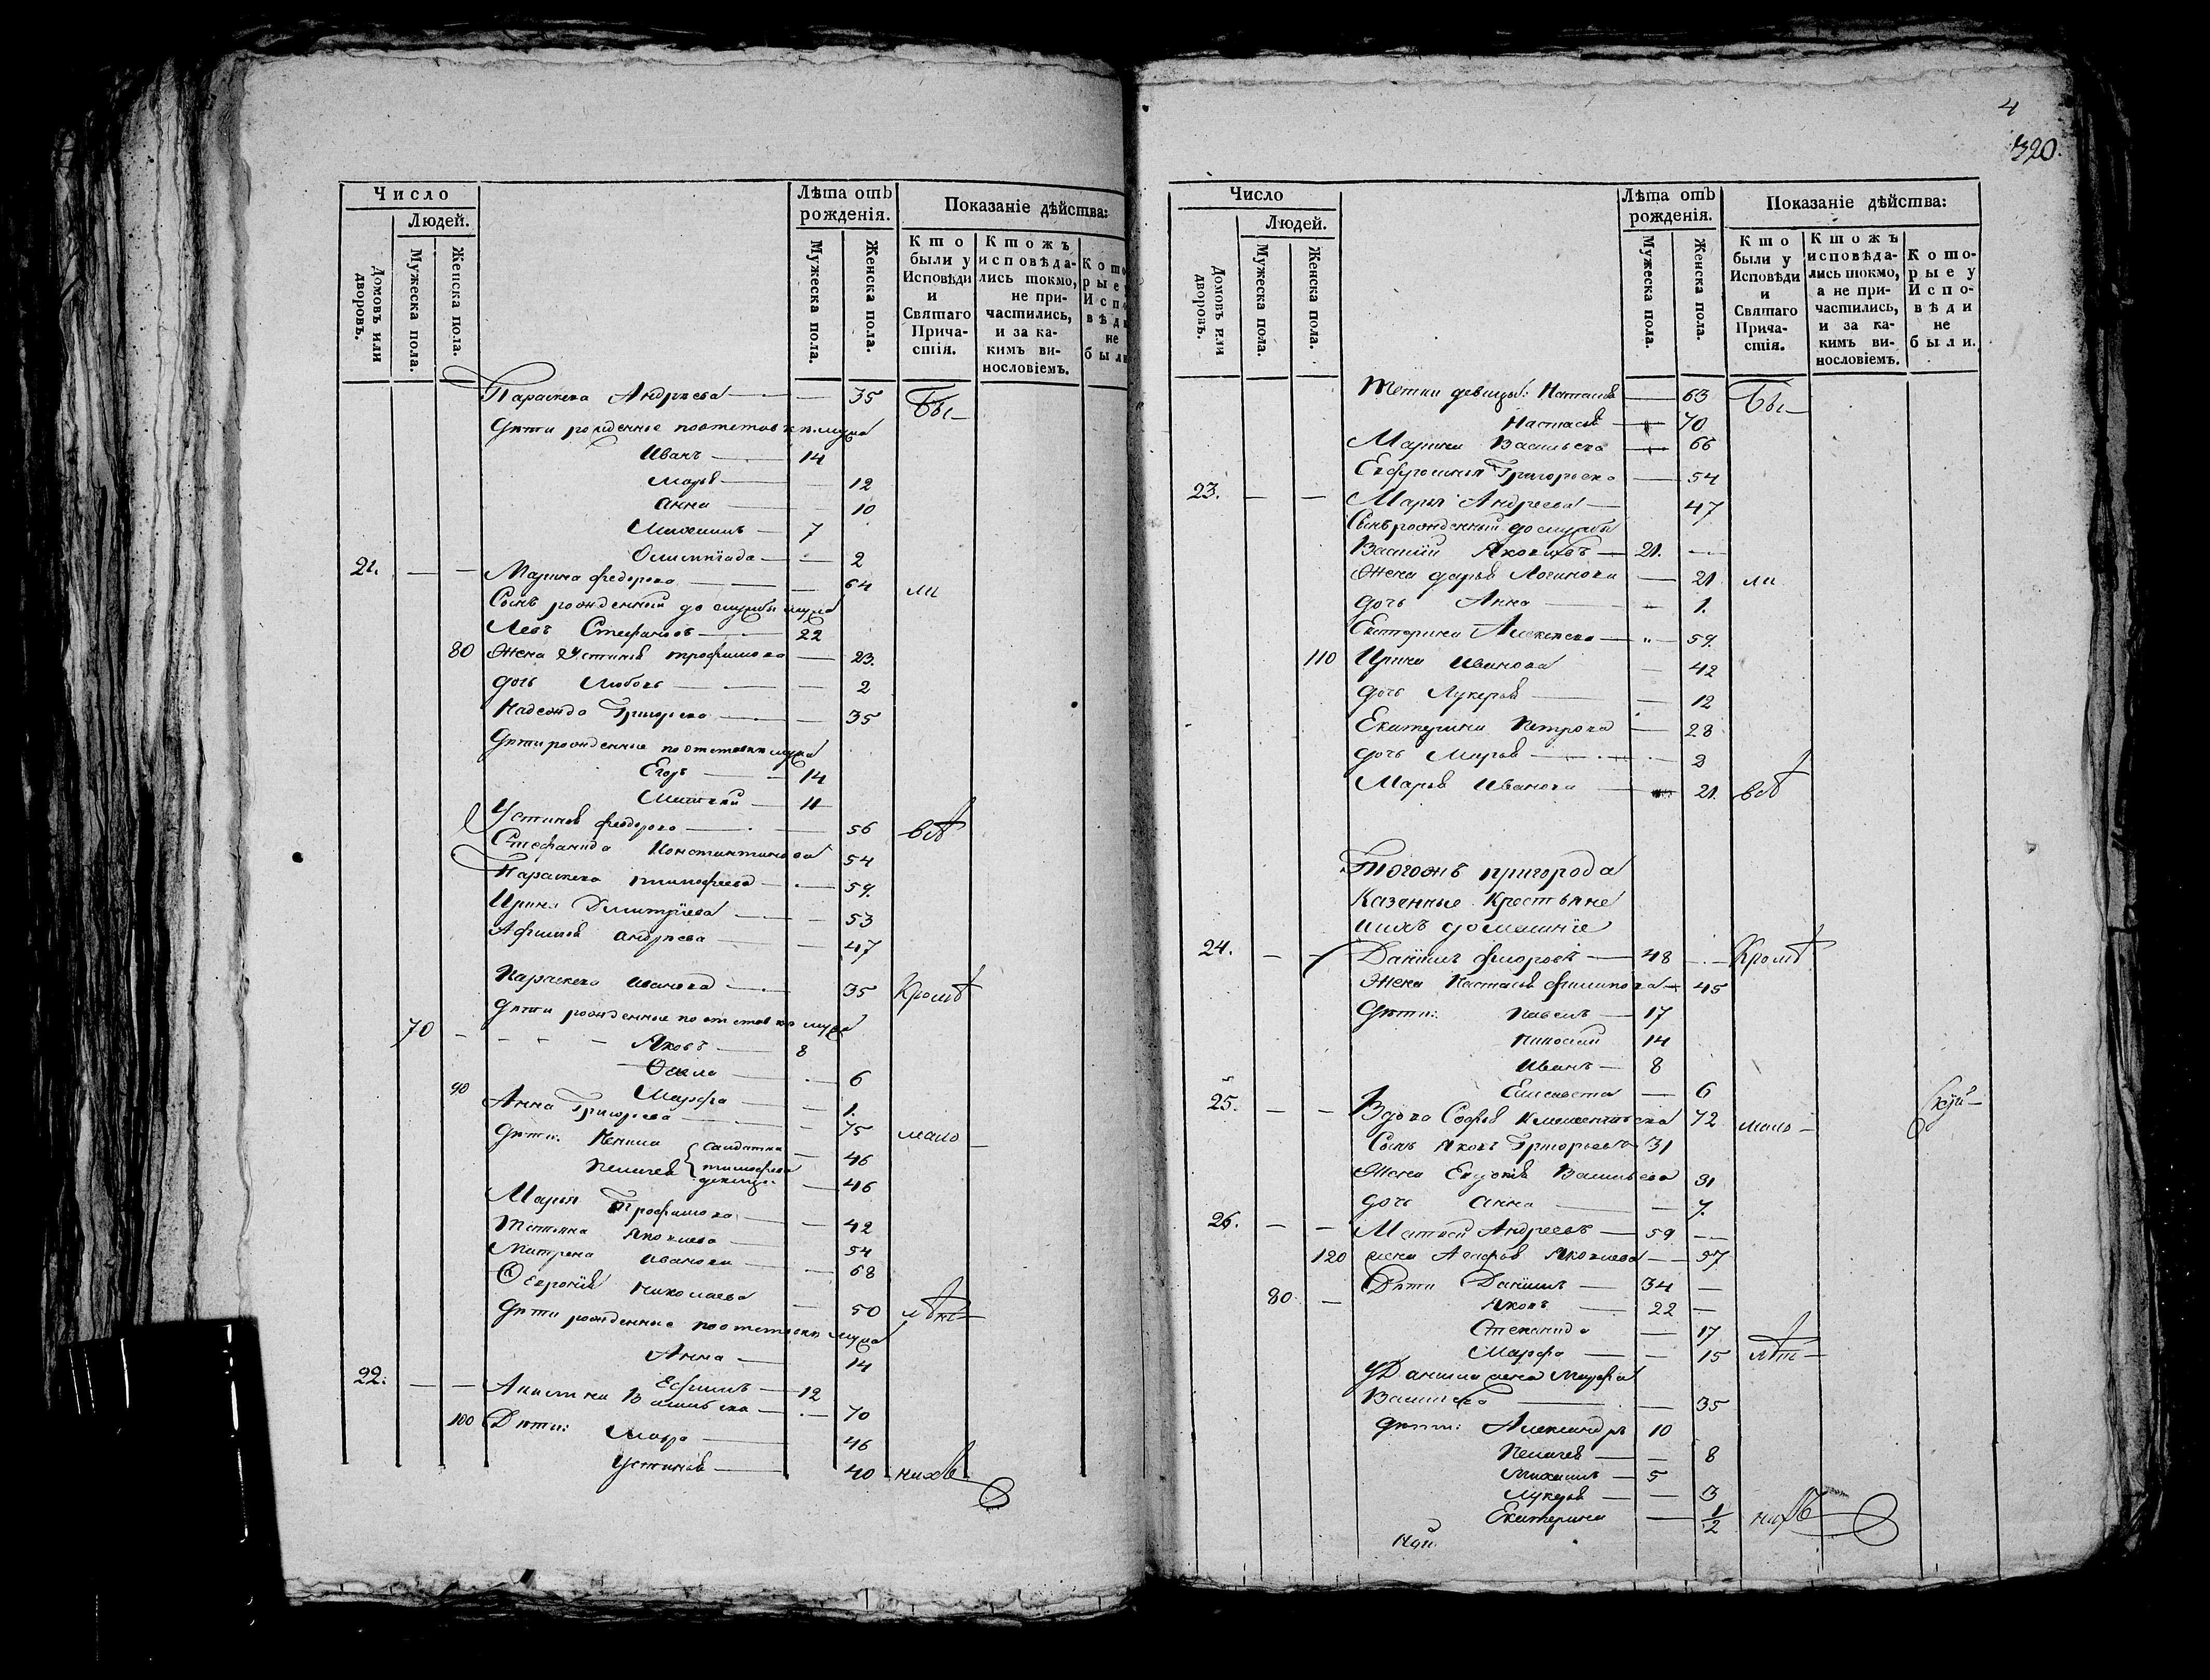 Число
Людей.
Домовъ или дворовъ.
Мужеска пола.
Женска пола.
Лѣта отъ рожденія.
Мужеска пола.
Женска пола.
Показаніе дѣйства:
Кто были у Исповѣди и Святаго Причастія.
Ктожъ исповѣдались токмо, не причастились, и за какимъ винословіемъ.
Кото рые Испо вѣди не были
Параскева Андреева 35 Бы
Дѣти рожденные поотставкѣ мужа
Иванъ 14
Марья 12
Анна 10
Михаилъ 7
Олимпіада 2
21. Марина Федорова 64 ли
Сынъ рожденный до службы мужа
Левъ Стефановъ 22
80 Жена Устинья Трофимова 23.
дочь Любовь 2
Надежда Григорьева 35
Дѣти рожденные поотставкѣ мужа
Егоръ 14
11
Устинья Федорова 56 всѣ
Стефанида Константинова 54
Параскева Тимофеева 59.
Ирина Дмитріева 53
Афимья Андреева 47
Параскева Иванова 35 Кромѣ
Дѣти рожденные по отставкѣ мужа
70 Яковъ 8
6
90 Марфа 1.
Анна Григорьева 75 мало
Дѣти: 46
Пелагея 46
Марья Трофимова 42
Татьяна Яковлева 54
Матрена Иванова 68
Николаева 50 лѣт
Дѣти рожденные поотставкѣ мужа
Анна 14
Ефимъ 12
22. 70
100 Дѣти: Мавра 46
Устинья 40 нихъ
4
320.
Число
Людей.
Домовъ или дворовъ.
Мужеска пола.
Женска пола.
Лѣта отъ рожденія.
Мужеска пола.
Женска пола.
Показаніе дѣйства:
Кто были у Исповѣди и Святаго Причастія.
Ктожъ исповѣдались токмо, а не причастились, и за какимъ винословіемъ.
Которые у Исповѣди не были.
Тетки девицы: Наталья 63 Бы
Настасья 70
Марина Васильева 66
Евфросинья Григорьева 54
23. Марья Андреева 47
Сынъ рожденный до службы
Василій Яковлевъ 21.
Жена Дарья Логинова 21 ли
дочь Анна 1.
Екатерина Алексеева 59.
110 Ирина Иванова 42
дочь Лукерья 12
Екатерина Петрова 28
дочь Марья 2
Марья Иванова 21. всѣ
Тогожъ пригорода
Казенные Крестьяне
и ихъ домашніе
24. Даніилъ Федоровъ 48 Кромѣ
Жена Настасья Филипова 45
Дѣти: Павелъ 17
Николай 14
Иванъ 8
Елисавета 6
25. Вдова Софья Климентьева 72 мало
Сынъ Яковъ Григорьевъ 31
Жена Евдокія Васильева 31
дочь Анна 7.
26. Матвей Андреевъ 59
120 жена Агафья Яковлева 57
Дѣти Даніилъ 34
80 Яковъ 22
Степанида 17
Марфа 15 лѣт
У Данила жена Марфа
35
дѣти: Александръ 10
Пелагея 8
Михаилъ 5
Лукерья 3
Екатерина 1/2 нихъ